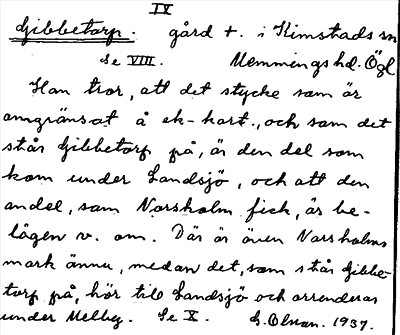 IV
Gibbetorp. gård +. i Kimstads sn
Se VIII. Memmings hd. Ögl
Han tror, att det stycke som är
omgränsat å ek-kart., och som det
står Gibbetorp på, är den del som
kom under Landsjö, och att den
andel, som Norsholm fick, är be-
lägen v. om. Där är även Norsholms
mark ännu, medan det, som står Gibbe-
torp på, hör till Landsjö och arrenderas
under Melby. Se X. G. Olsson. 1937.